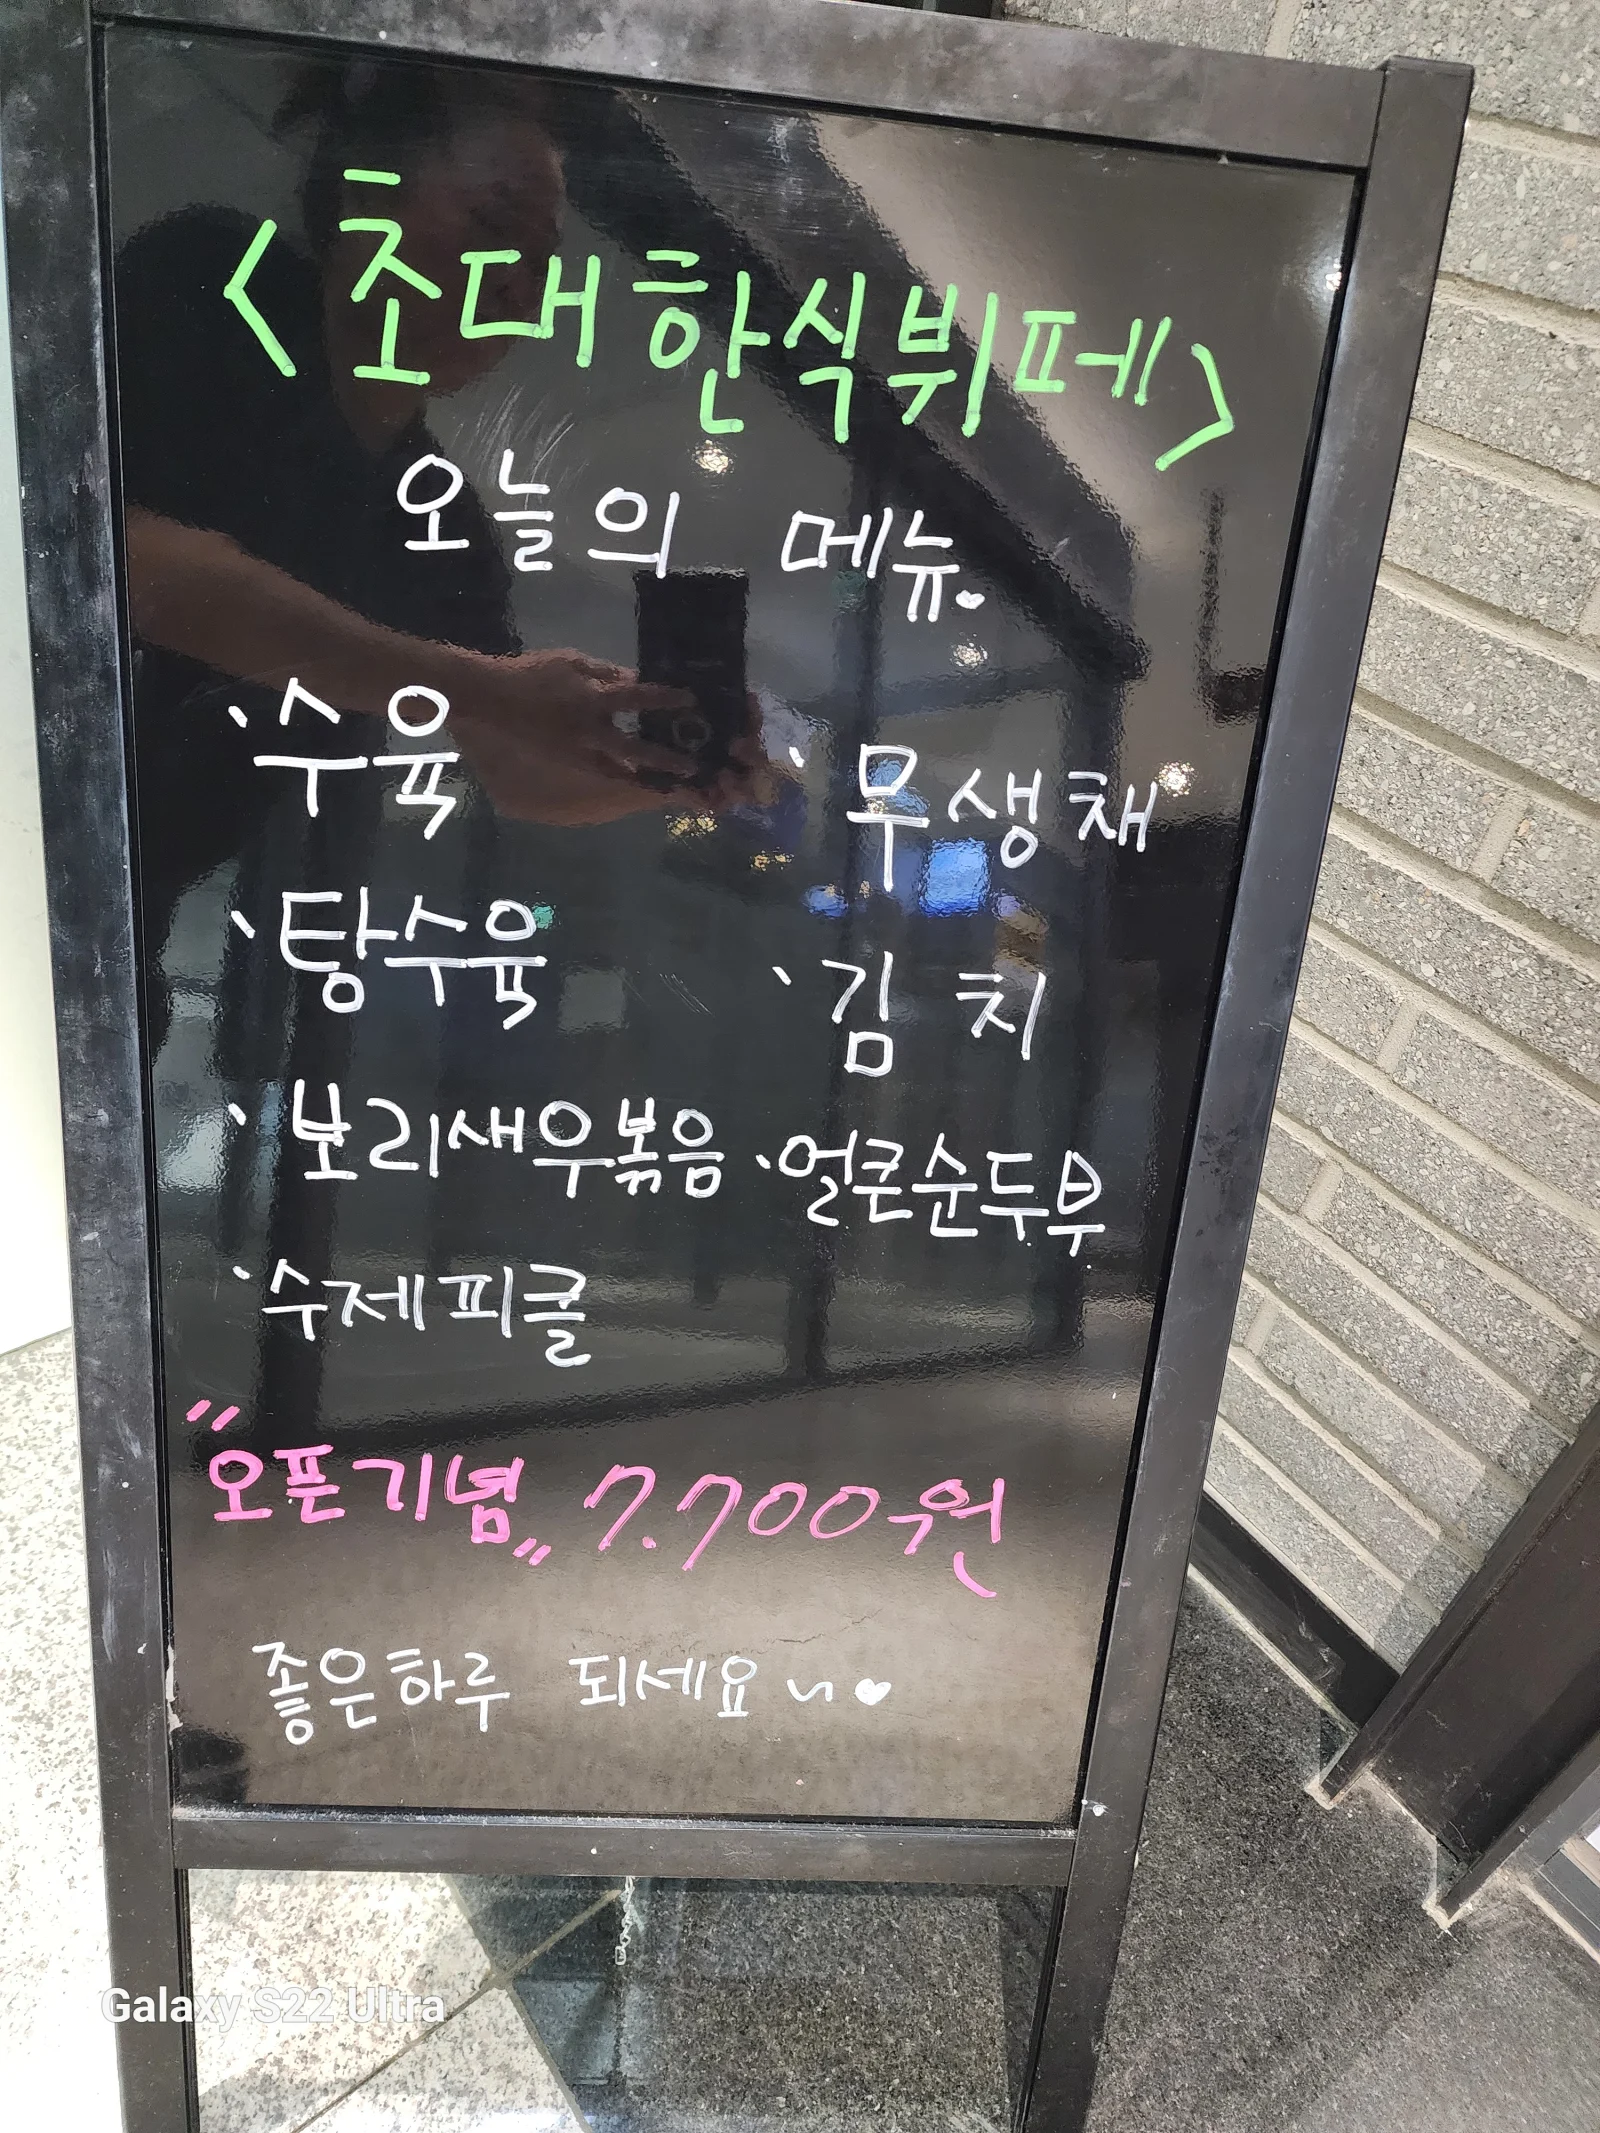 <초대한식뷔페>
오늘의 메뉴
· 수육
· 무생채
· 탕수육
· 김치
· 보리새우볶음
· 얼큰순두부
· 수제피클
"오픈기념" 7.700원
좋은하루 되세요~♥
Galaxy S22 Ultra